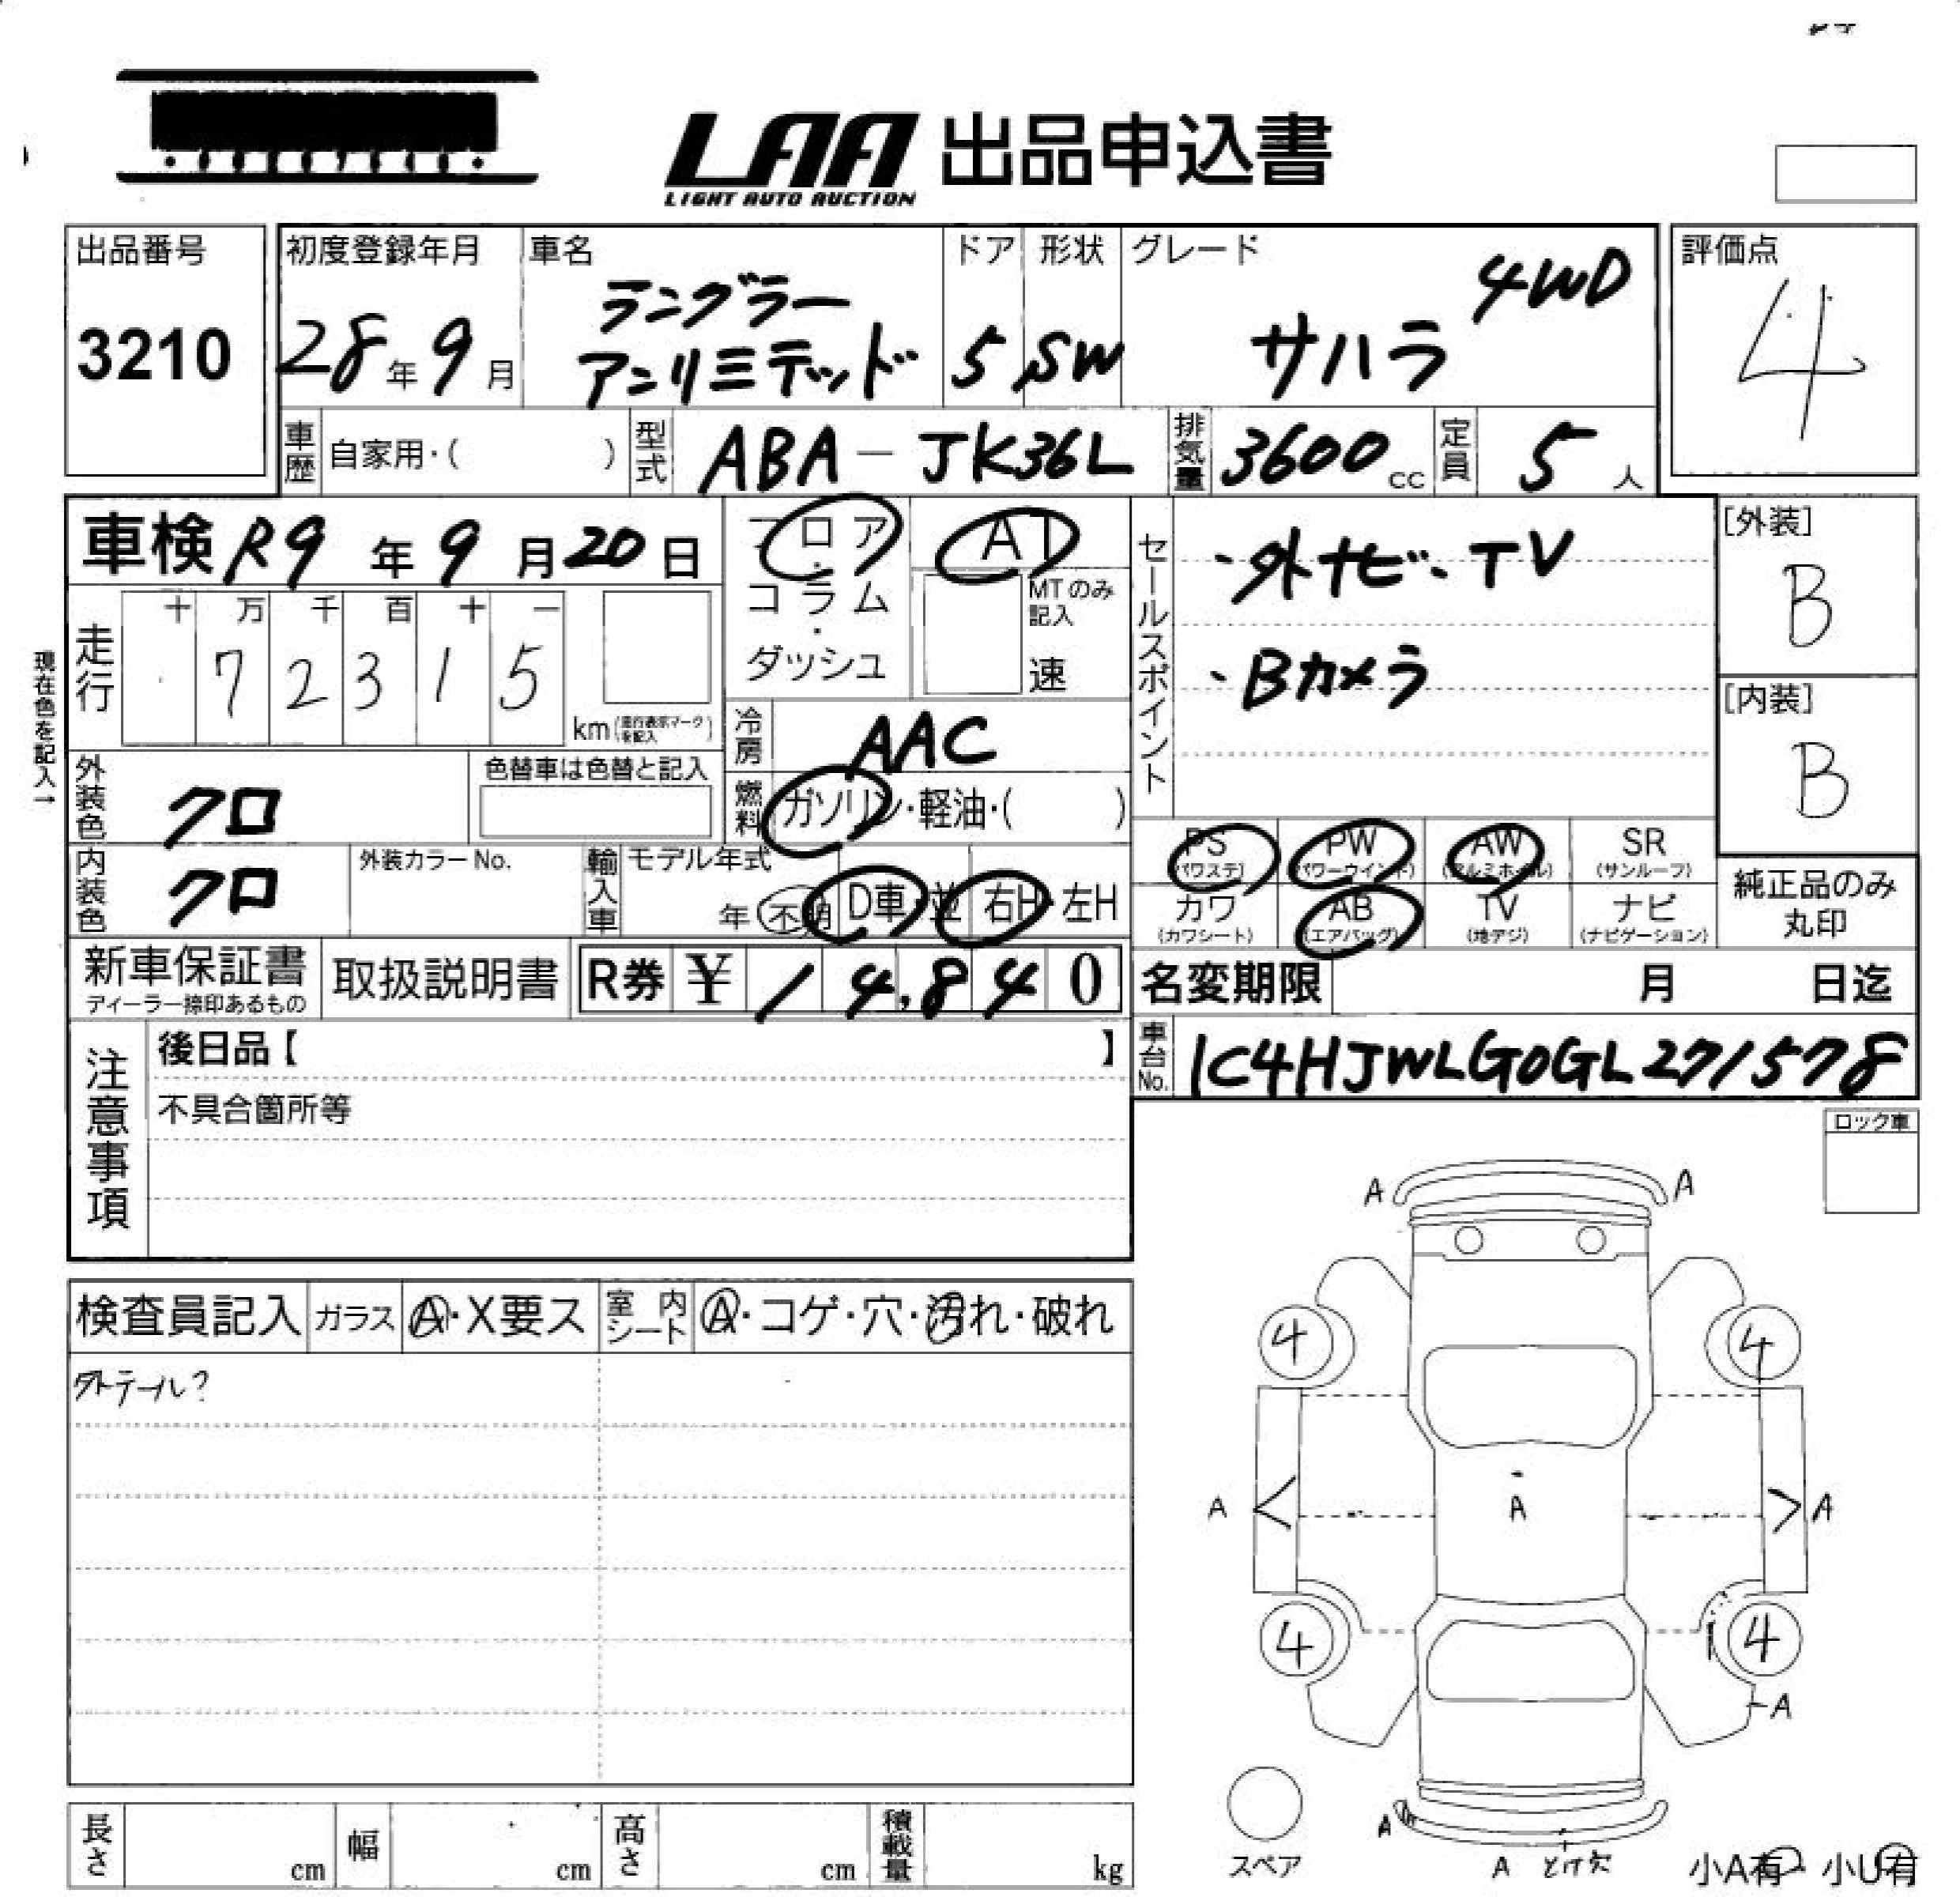 LAA 出品申込書
LIGHT AUTO AUCTION
出品番号
3210
初度登録年月
28年9月
車名
ラングラー
アンリミテッド
ドア
5
形状
SW
グレード
4WD
サハラ
評価点
4
車歴 自家用・( )
型式 ABA-JK36L
排気量 3600cc
定員 5人
車検 R9年9月20日
フロア・コラム・ダッシュ
AT
MTのみ記入
速
セールスポイント
・外ナビ・TV
・Bカメラ
[外装]
B
[内装]
B
現在色を記入→
走行
十 万 千 百 十 一
7 2 3 1 5
km (走行表示マークを記入)
冷房 AAC
燃料 ガソリン・軽油・( )
外装色 クロ
色替車は色替と記入
内装色 クロ
外装カラーNo.
輸入車 モデル年式
年 不明 D車・並 右H・左H
PS (パワステ)
PW (パワーウインド)
AW (アルミホイル)
SR (サンルーフ)
カワ (カワシート)
AB (エアバッグ)
TV (地デジ)
ナビ (ナビゲーション)
純正品のみ
丸印
新車保証書
ディーラー捺印あるもの
取扱説明書
R券 ¥ 14,840
名変期限 月 日迄
車台No. 1C4HJWLG0GL271578
注意事項
後日品【 】
不具合箇所等
ロック車
検査員記入
ガラス A・X要ス
室内シート A・コゲ・穴・汚れ・破れ
外テール?
A A
4 4
A A A
4 4
A
A
A とけ欠
スペア
小A有・小U有
長さ cm
幅 cm
高さ cm
積載量 kg